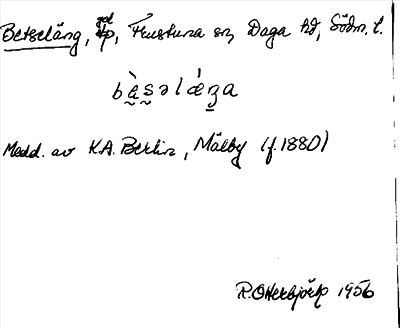 Betseläng, Frustuna sn, Daga hd, Södm. l.
bàsəlǽŋa
Medd. av K.A. Berlin, Mälby (f. 1880)
R. Otterbjörk 1956